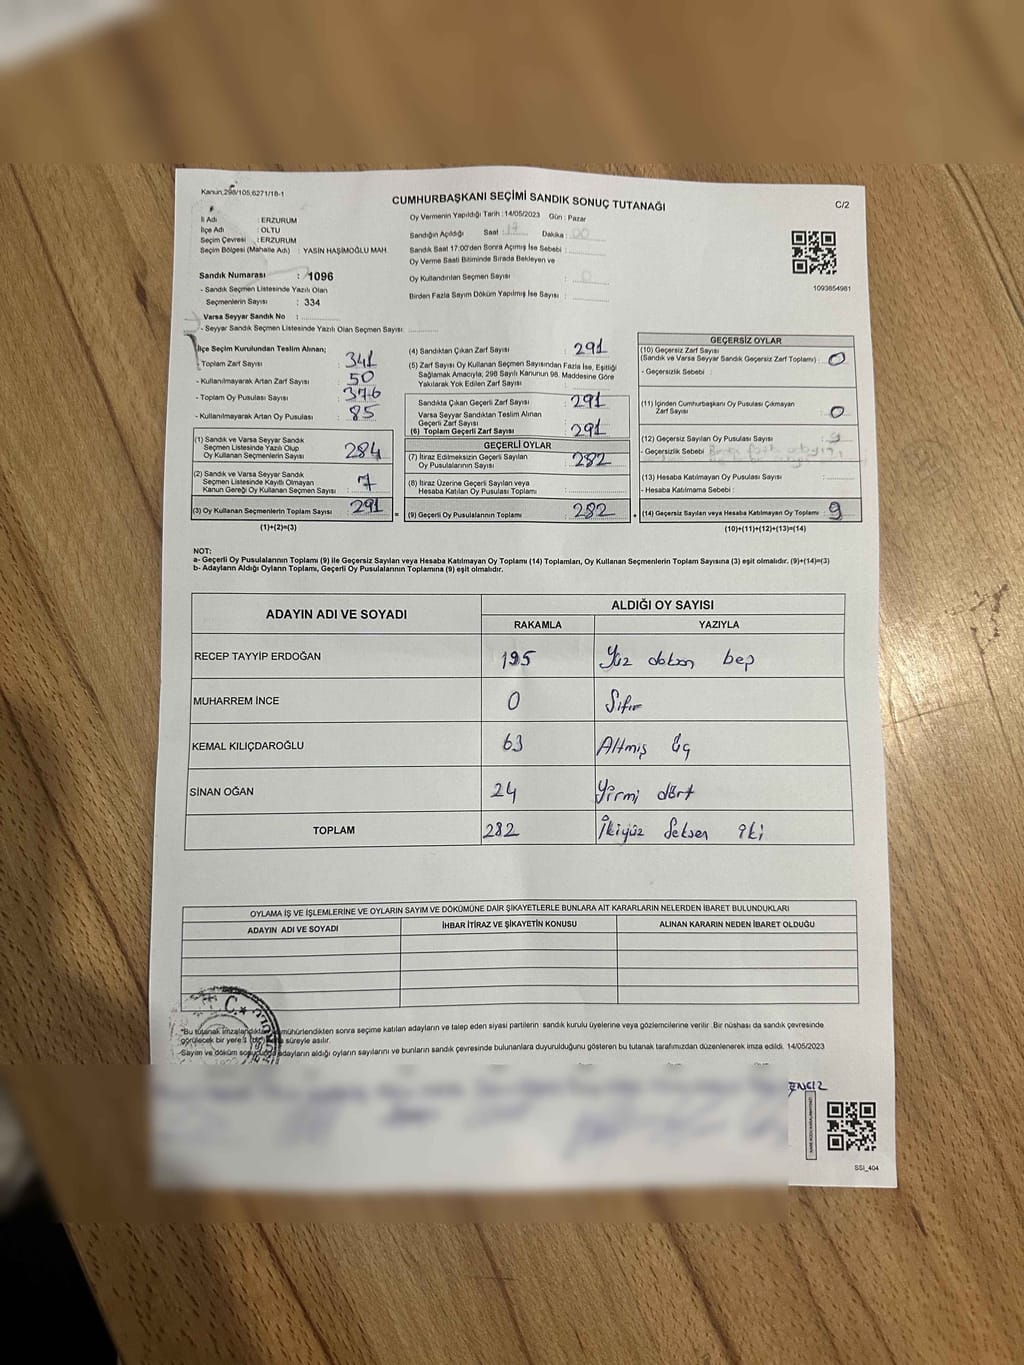 Kanun,298/105,6271/18-1
CUMHURBAŞKANI SEÇİMİ SANDIK SONUÇ TUTANAĞI
C/2
İl Adı : ERZURUM
İlçe Adı : OLTU
Seçim Çevresi : ERZURUM
Seçim Bölgesi (Mahalle Adı) : YASİN HAŞİMOĞLU MAH.
Sandık Numarası : 1096
- Sandık Seçmen Listesinde Yazılı Olan
Seçmenlerin Sayısı : 334
Varsa Seyyar Sandık No :
- Seyyar Sandık Seçmen Listesinde Yazılı Olan Seçmen Sayısı:
Oy Vermenin Yapıldığı Tarih : 14/05/2023 Gün : Pazar
Sandığın Açıldığı Saat : 17 Dakika : 00
Sandık Saat 17:00'den Sonra Açımış İse Sebebi :
Oy Verme Saati Bitiminde Sırada Bekleyen ve
Oy Kullandırılan Seçmen Sayısı : 0
Birden Fazla Sayım Döküm Yapılmış İse Sayısı :
1093854981
İlçe Seçim Kurulundan Teslim Alınan;
- Toplam Zarf Sayısı : 341
- Kullanılmayarak Artan Zarf Sayısı : 50
- Toplam Oy Pusulası Sayısı : 376
- Kullanılmayarak Artan Oy Pusulası : 85
(1) Sandık ve Varsa Seyyar Sandık
Seçmen Listesinde Yazılı Olup
Oy Kullanan Seçmenlerin Sayısı : 284
(2) Sandık ve Varsa Seyyar Sandık
Seçmen Listesinde Kayıtlı Olmayan
Kanun Gereği Oy Kullanan Seçmen Sayısı : 7
(3) Oy Kullanan Seçmenlerin Toplam Sayısı : 291
(1)+(2)=(3)
(4) Sandıktan Çıkan Zarf Sayısı : 291
(5) Zarf Sayısı Oy Kullanan Seçmen Sayısından Fazla İse, Eşitliği
Sağlamak Amacıyla, 298 Sayılı Kanunun 98. Maddesine Göre
Yakılarak Yok Edilen Zarf Sayısı :
Sandıkta Çıkan Geçerli Zarf Sayısı : 291
Varsa Seyyar Sandıktan Teslim Alınan
Geçerli Zarf Sayısı :
(6) Toplam Geçerli Zarf Sayısı : 291
GEÇERLİ OYLAR
(7) İtiraz Edilmeksizin Geçerli Sayılan
Oy Pusulalarının Sayısı : 282
(8) İtiraz Üzerine Geçerli Sayılan veya
Hesaba Katılan Oy Pusulası Toplamı :
= (9) Geçerli Oy Pusulalarının Toplamı : 282 +
GEÇERSİZ OYLAR
(10) Geçersiz Zarf Sayısı
(Sandık ve Varsa Seyyar Sandık Geçersiz Zarf Toplamı) : 0
- Geçersizlik Sebebi :
(11) İçinden Cumhurbaşkanı Oy Pusulası Çıkmayan
Zarf Sayısı : 0
(12) Geçersiz Sayılan Oy Pusulası Sayısı : 9
- Geçersizlik Sebebi
(13) Hesaba Katılmayan Oy Pusulası Sayısı :
- Hesaba Katılmama Sebebi :
(14) Geçersiz Sayılan veya Hesaba Katılmayan Oy Toplamı : 9
(10)+(11)+(12)+(13)=(14)
NOT:
a- Geçerli Oy Pusulalarının Toplamı (9) ile Geçersiz Sayılan veya Hesaba Katılmayan Oy Toplamı (14) Toplamları, Oy Kullanan Seçmenlerin Toplam Sayısına (3) eşit olmalıdır. (9)+(14)=(3)
b- Adayların Aldığı Oyların Toplamı, Geçerli Oy Pusulalarının Toplamına (9) eşit olmalıdır.
ADAYIN ADI VE SOYADI
ALDIĞI OY SAYISI
RAKAMLA YAZIYLA
RECEP TAYYİP ERDOĞAN 195 Yüz doksan beş
MUHARREM İNCE 0 Sıfır
KEMAL KILIÇDAROĞLU 63 Altmış Üç
SİNAN OĞAN 24 Yirmi dört
TOPLAM 282 İkiyüz Seksen iki
OYLAMA İŞ VE İŞLEMLERİNE VE OYLARIN SAYIM VE DÖKÜMÜNE DAİR ŞİKAYETLERLE BUNLARA AİT KARARLARIN NELERDEN İBARET BULUNDUKLARI
ADAYIN ADI VE SOYADI İHBAR İTİRAZ VE ŞİKAYETİN KONUSU ALINAN KARARIN NEDEN İBARET OLDUĞU
*Bu tutanak imzalandıktan mühürlendikten sonra seçime katılan adayların ve talep eden siyasi partilerin sandık kurulu üyelerine veya gözlemcilerine verilir. Bir nüshası da sandık çevresinde
görülecek bir yere süreyle asılır.
Sayım ve döküm adayların aldığı oyların sayılarını ve bunların sandık çevresinde bulunanlara duyurulduğunu gösteren bu tutanak tarafımızdan düzenlenerek imza edildi. 14/05/2023
SSI_404